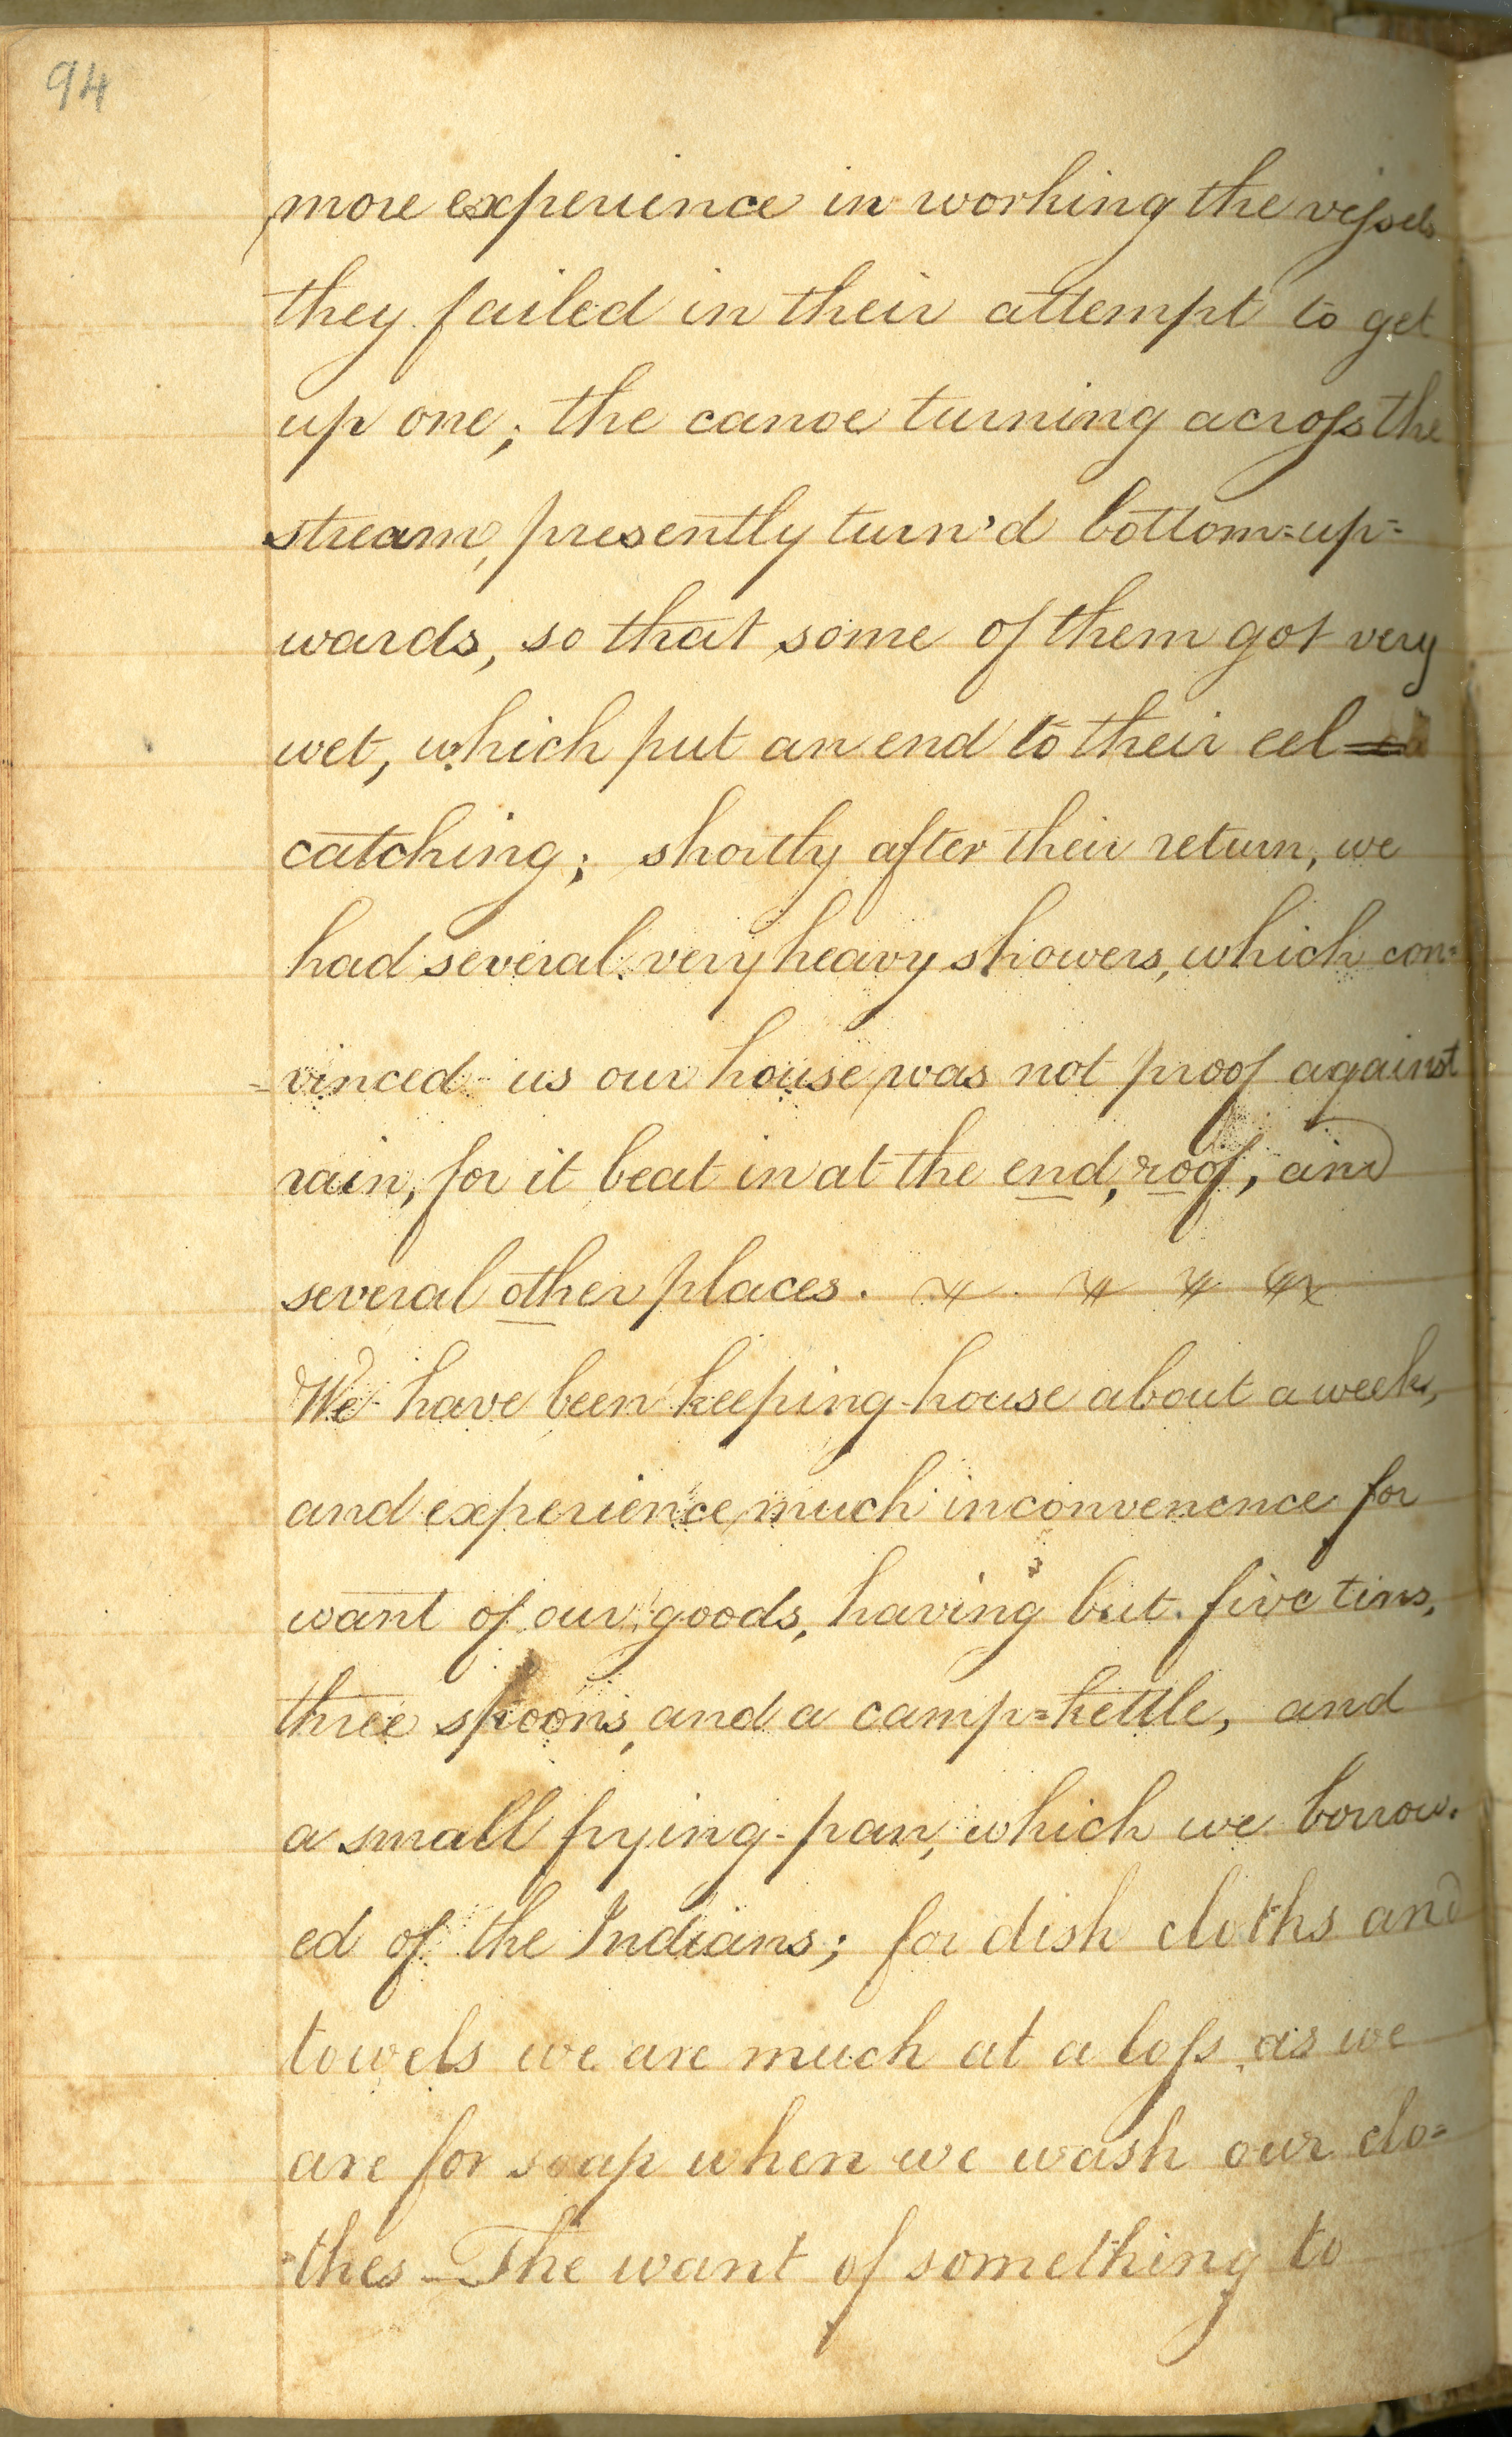 94
more experience in working the vessels
they failed in their attempt to get
up one; the canoe turning across the
stream, presently turn'd bottom=up=
wards, so that some of them got very
wet, which put an end to their eel
catching; shortly after their return, we
had several very heavy showers, which con=
=vinced us our house was not proof against
rain, for it beat in at the end, roof, and
several other places.
We have been keeping-house about a week,
and experience much inconvenence for
want of our goods, having but five tins,
three spoons, and a camp=kettle, and
a small frying-pan, which we borrow-
ed of the Indians; for dish cloths and
towels we are much at a loss, as we
are for soap when we wash our clo=
=thes – The want of something to